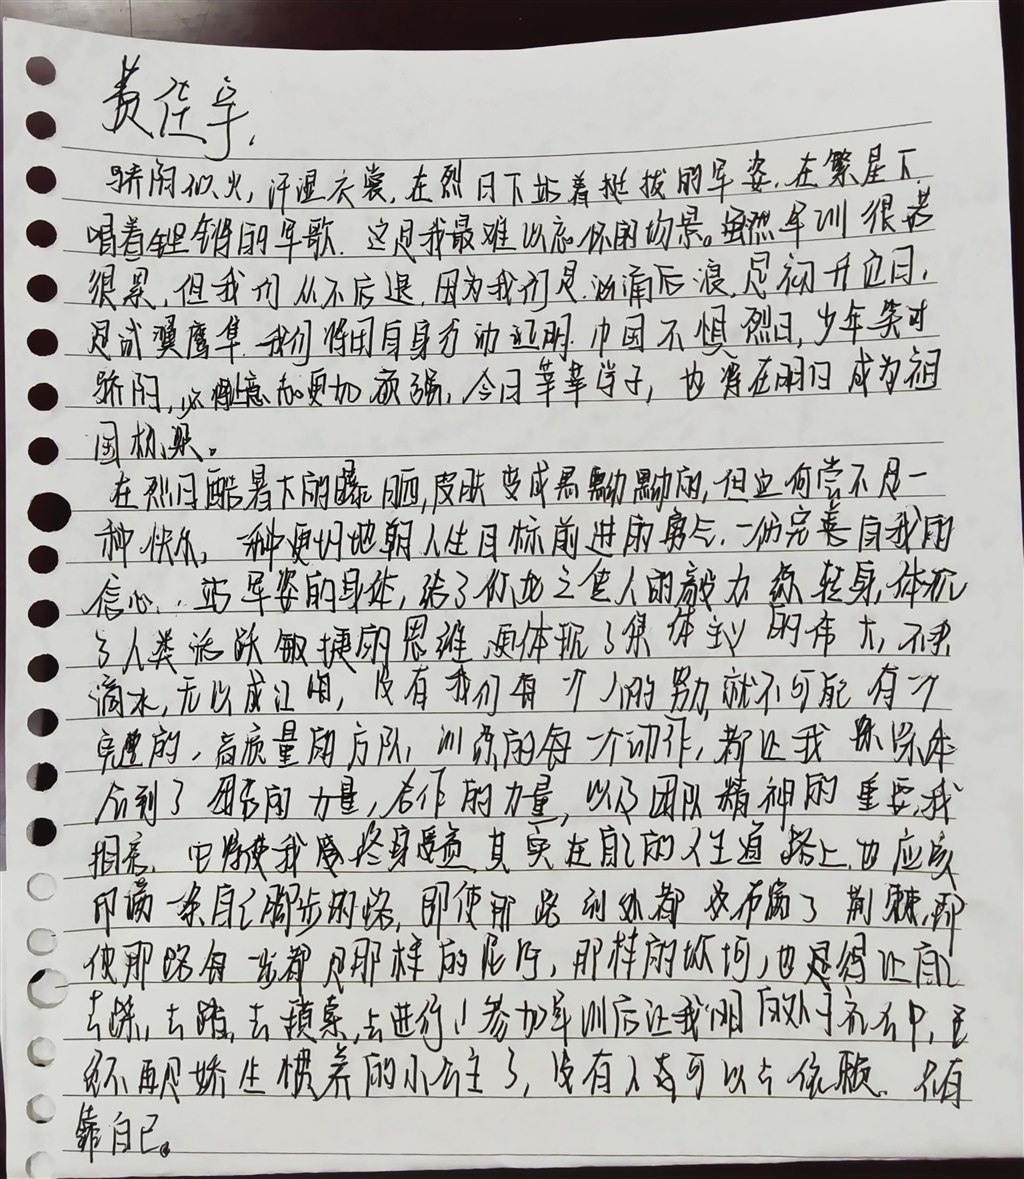 黄佳宇.
骄阳似火,汗湿衣裳,在烈日下站着挺拔的军姿.在繁星下
唱着铿锵的军歌.这是我最难以忘怀的场景。虽然军训很苦
很累,但我们从不后退,因为我们是汹涌后浪,是初升应日,
是试翼鹰隼.我们将用自身行动证明.中国不惧烈日,少年笑对
骄阳,必将意志更加顽强,今日莘莘学子,也将在明日成为祖
国栋梁。
在烈日酷暑下的曝晒,皮肤变成黑黝黝的,但这何尝不是一
种快乐,一种更好地朝人生目标前进的勇气.一份完善自我的
信心..站军姿的身体,给了你 之 人的毅力 练转身,体现
了人类活跃敏捷的思维,更体现了集体主义的伟大,不积
滴水,无以成江海,没有我们每一个人的努力,就不可能有一个
完整的,高质量的方队,训练的每一个动作,都让我深深体
会到了团结的力量,合作的力量,以及团队精神的重要,我
相信.它将使我受终身受益.其实在自己的人生道路上.也应该
印满一条自己脚步的路,即使那路到处都 布满了荆棘,即
使那路每一步都是那样的泥泞,那样的坎坷,也是得让自己
去踩,去踏,去摸索,去进行!参加军训后让我明白处于社会中,已
经不再是娇生惯养的小公主了,没有人 可以去依赖.只有
靠自己。